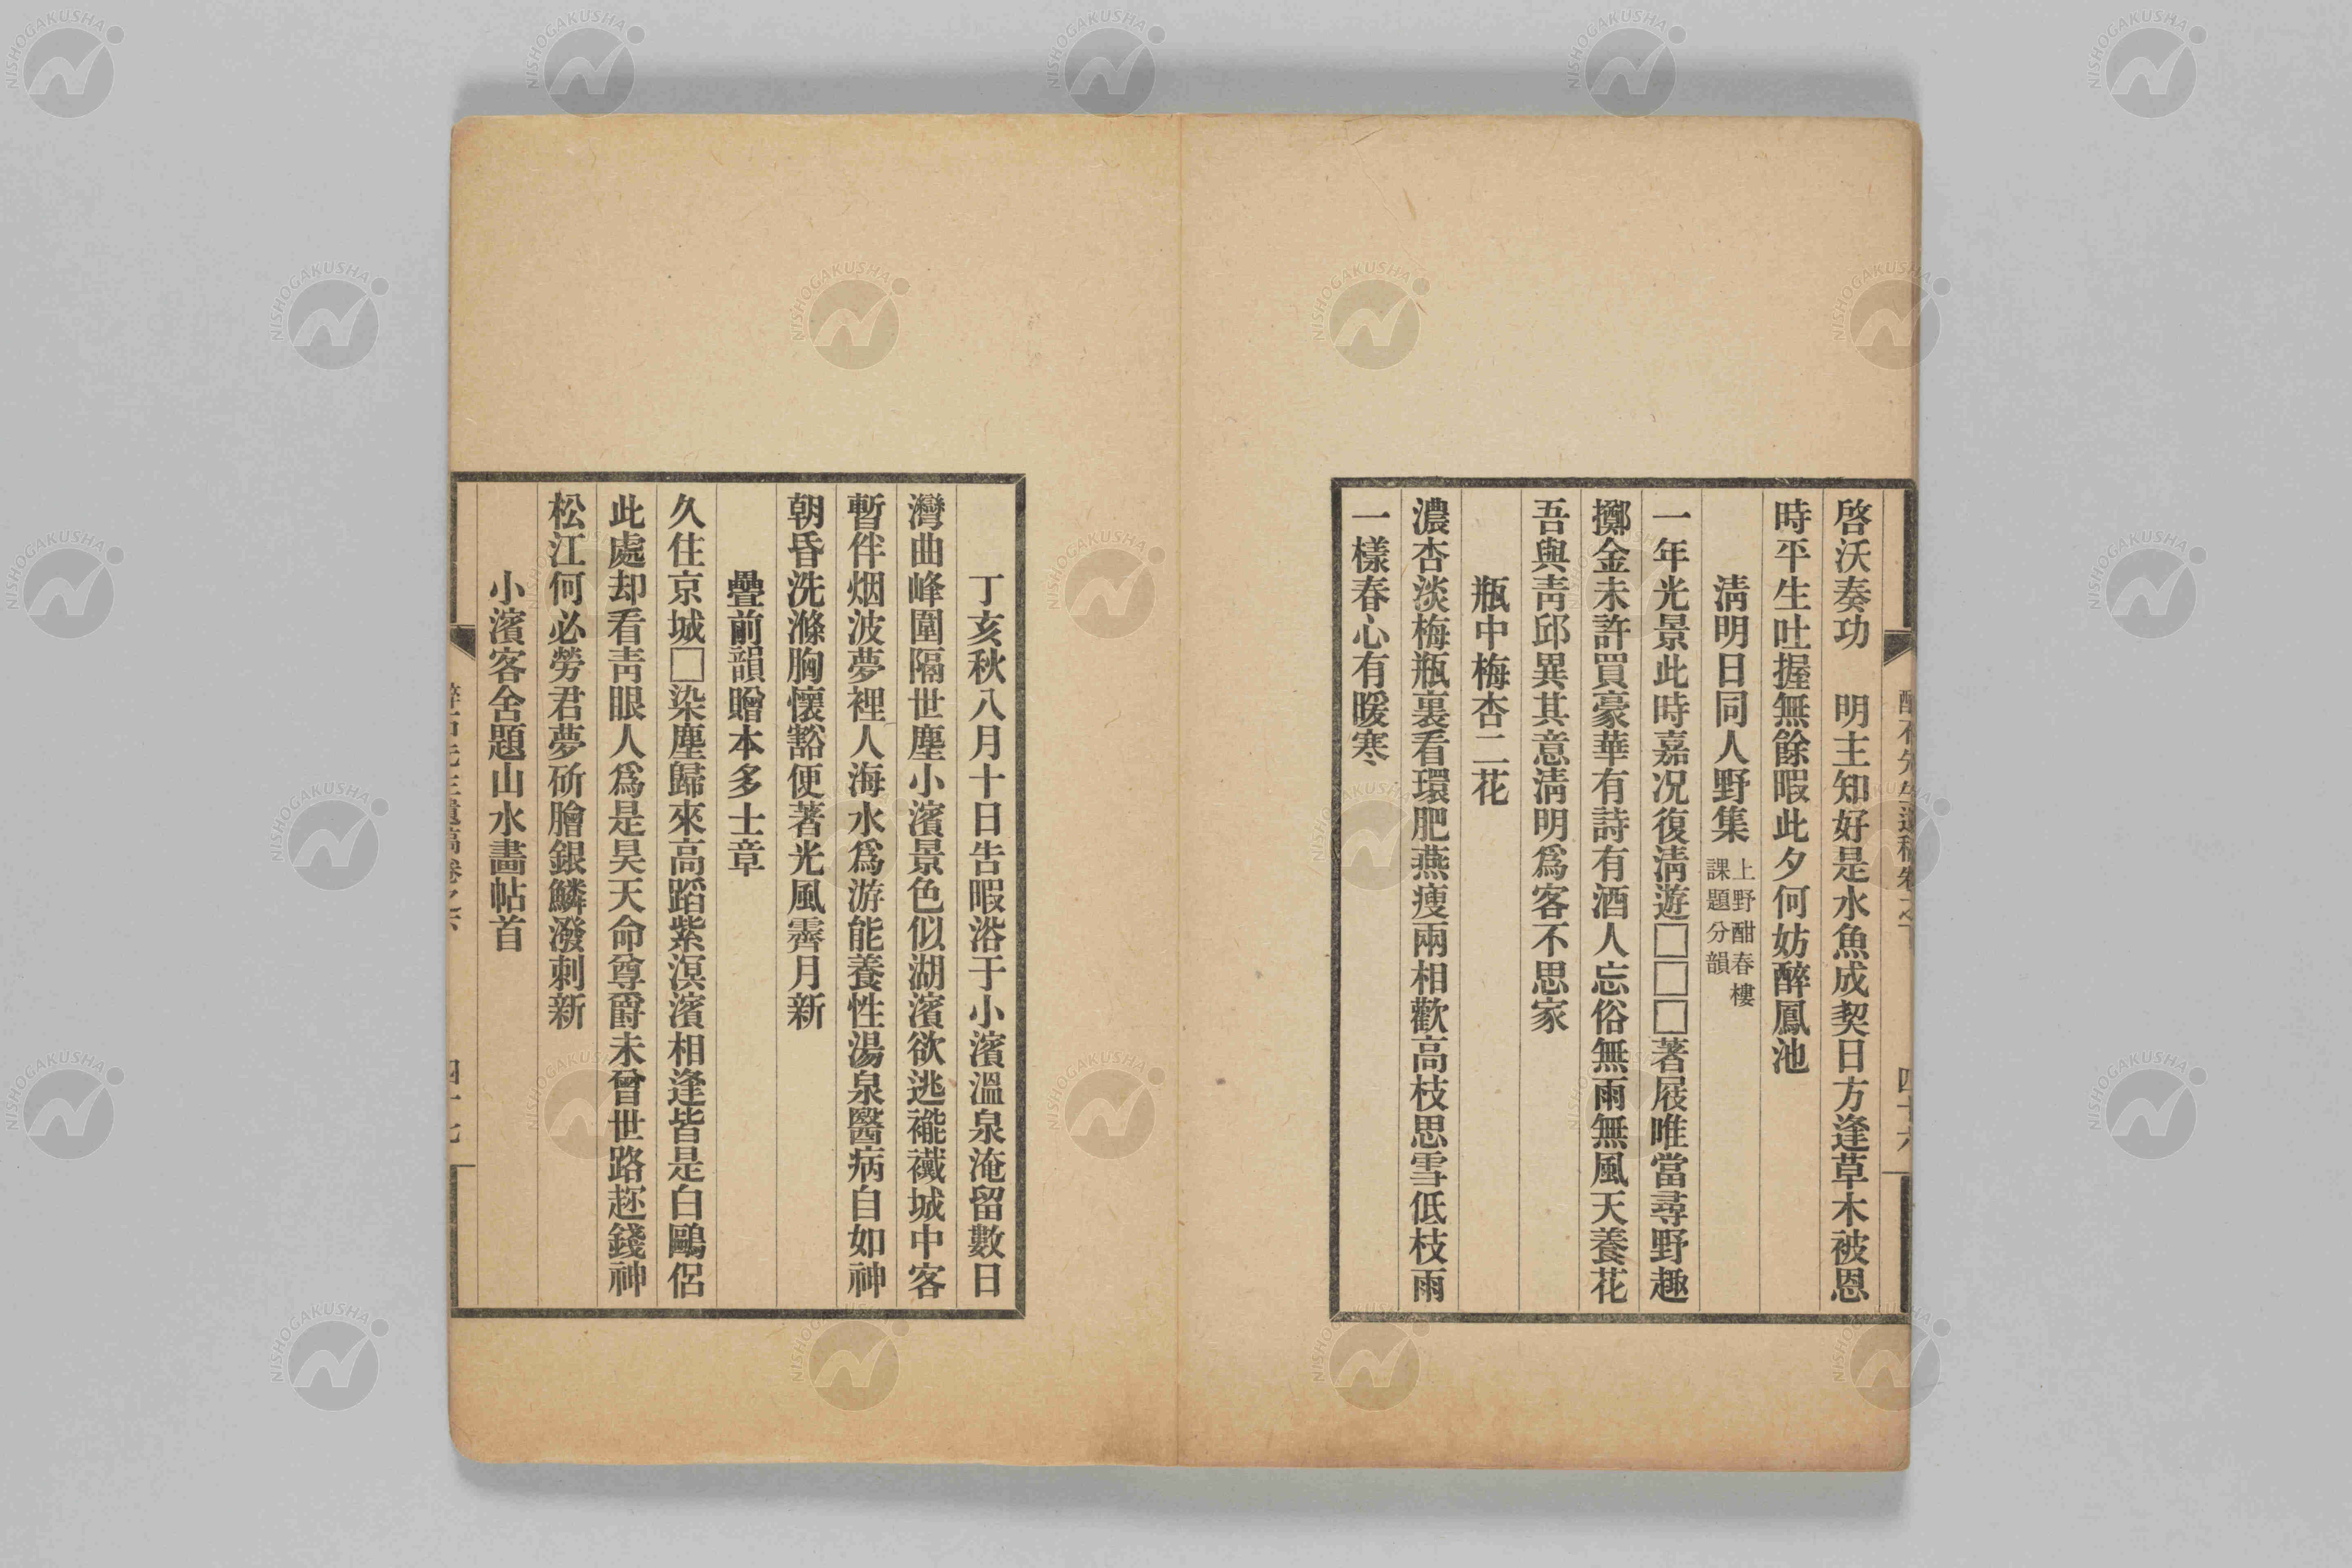 啓沃奏功　明主知好是水魚成契日方逢草木被恩
時平生吐握無餘暇此夕何妨醉鳳池
淸明日同人野集
上野酣春樓
課題分韻
一年光景此時嘉况復淸遊□□□著屐唯當尋野趣
擲金未許買豪華有詩有酒人忘俗無雨無風天養花
吾與靑邱異其意淸明爲客不思家
瓶中梅杏二花
濃杏淡梅瓶裏看環肥燕瘦兩相歡高枝思雪低枝雨
一樣春心有暖寒
丁亥秋八月十日告暇浴于小濱溫泉淹留數日
灣曲峰圍隔世塵小濱景色似湖濱欲逃襹襶城中客
暫伴烟波夢裡人海水爲游能養性湯泉醫病自如神
朝昏洗滌胸懷豁便著光風霽月新
疊前韻贈本多士章
久住京城□染塵歸來高蹈紫溟濱相逢皆是白鷗侶
此處却看靑眼人爲是昊天命尊爵未曾世路趂錢神
松江何必勞君夢斫膾銀鱗潑刺新
小濱客舍題山水畵帖首
四十六
NISHOGAKUSHA